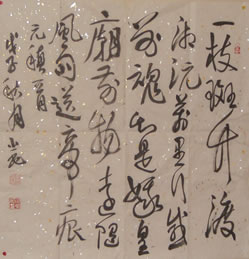 一枝斑竹渡
湘沅萬里行感
别魂知是娥皇
廟前物遠隨
風雨送啼痕
元稹
戊子秋月